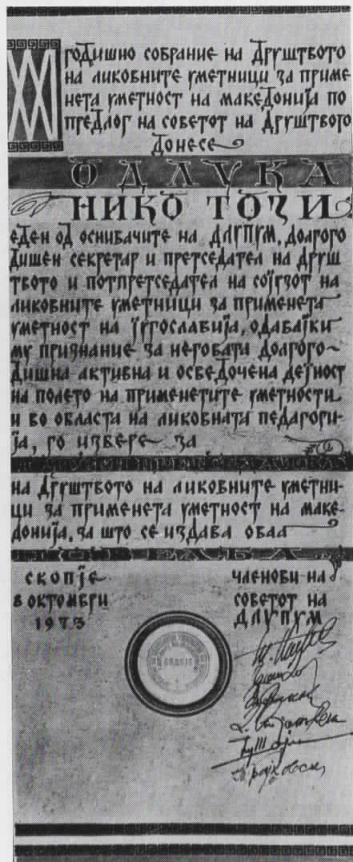 XXI
годишно собрание на друштвото
на ликовните уметници за приме
нета уметност на македонија по
предлог на советот на друштвото
донесе
ОДЛУКА
НИКО ТОЗИ
еден од основачите на ДЛУПУМ, долого
дишен секретар и претседател на друш
твото и потпретседател на сојузот на
ликовните уметници за применета
уметност на југославија, одавајќи
му признание за неговата долго-
дишна активна и осведочена дејност
на полето на применетите уметности
и во областа на ликовната педагоги-
ја, го избере за
на друштвото на ликовните уметни-
ци за применета уметност на маке-
донија, за што се издава оваа
ПОВЕЛБА
скопје
8 октомври
1973
членови на
советот на
ДЛУПУМ